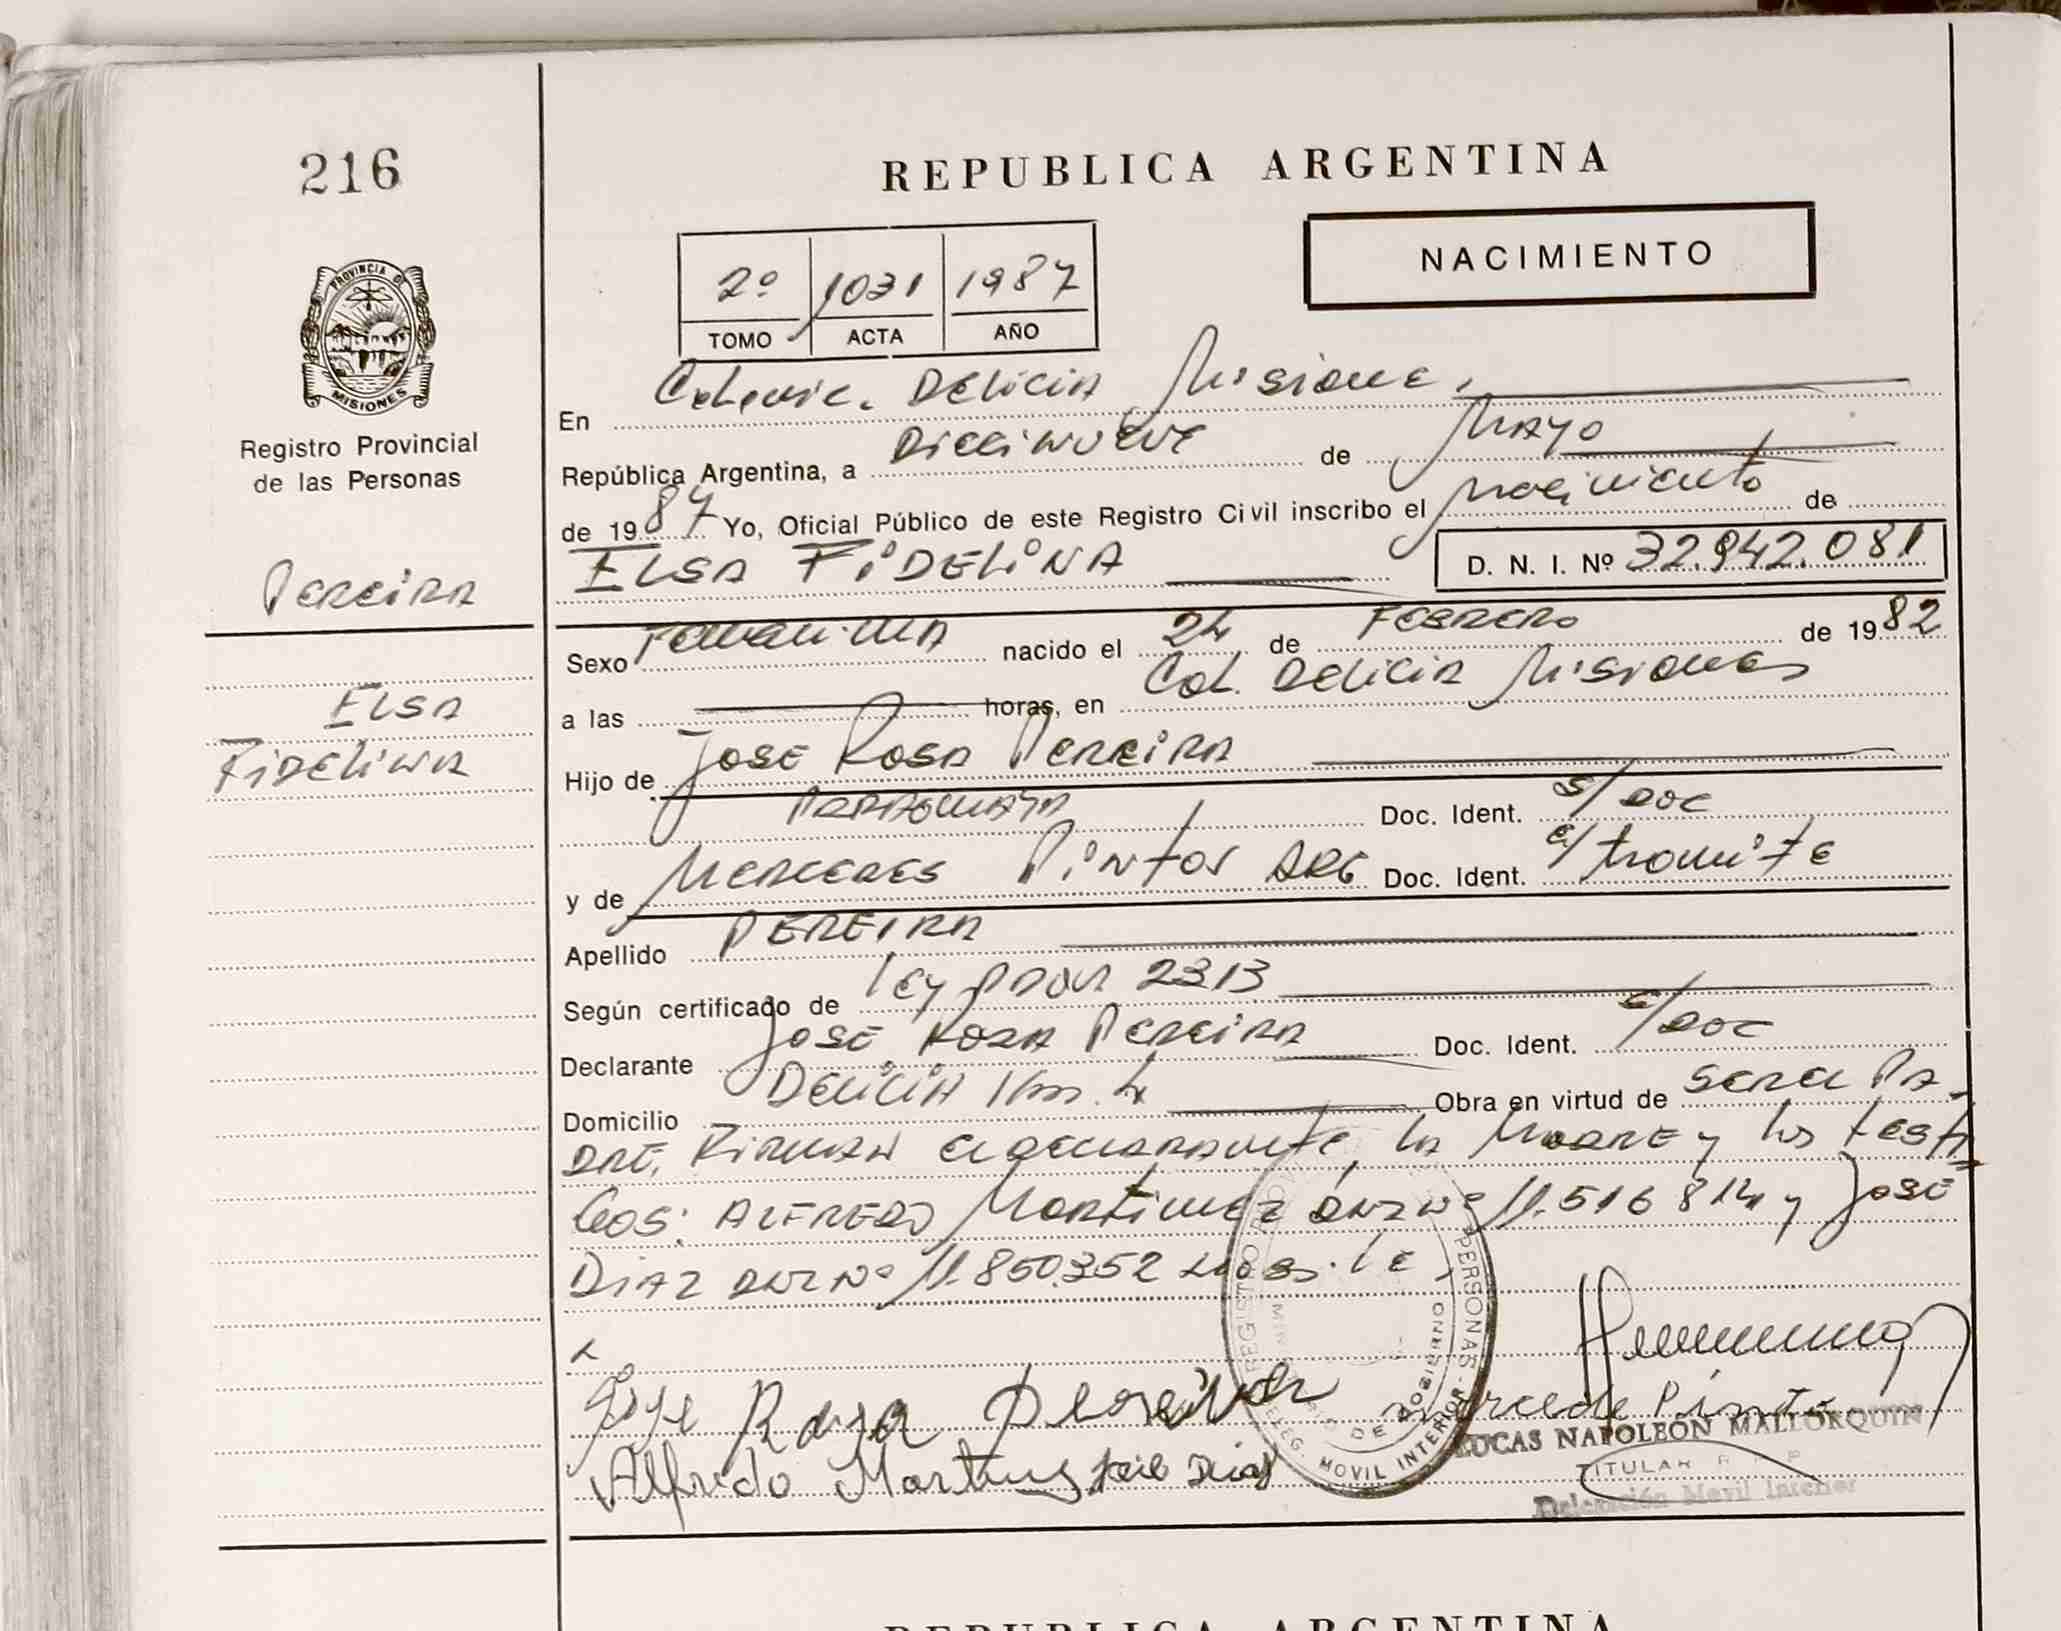 216
REPUBLICA ARGENTINA
NACIMIENTO
2º 1031 1987
TOMO ACTA AÑO
PROVINCIA DE
MISIONES
Registro Provincial
de las Personas
Pereira
Elsa
Fidelina
En Colonia Delicia Misiones
República Argentina, a Diecinueve de Mayo
de 1987 Yo, Oficial Público de este Registro Civil inscribo el nacimiento de
ELSA FIDELINA D. N. I. Nº 32.942.081
Sexo Femenina nacido el 24 de Febrero de 1982
a las horas, en Col. Delicia Misiones
Hijo de Jose Rosa Pereira
Doc. Ident. s/doc
y de Mercedes Pintos ARG Doc. Ident. e/tramite
Apellido PEREIRA
Según certificado de ley 2313
Declarante Jose Rosa Pereira Doc. Ident. s/doc
Domicilio Delicia Km. 4 Obra en virtud de ser el Pa-
dre, Firman el declarante, la Madre y los testi
gos: Alfredo Martinez DNI Nº 11.516 814 y Jose
Diaz DNI Nº 11.850.352
Jose Rosa Pereira
Mercede Pinto
Alfredo Martinez Jose Diaz
REGISTRO PERSONAS - DELEG. MOVIL INTERIOR
DE GOBIERNO
LUCAS NAPOLEÓN MALLORQUIN
TITULAR
Delegación Movil Interior
REPUBLICA ARGENTINA